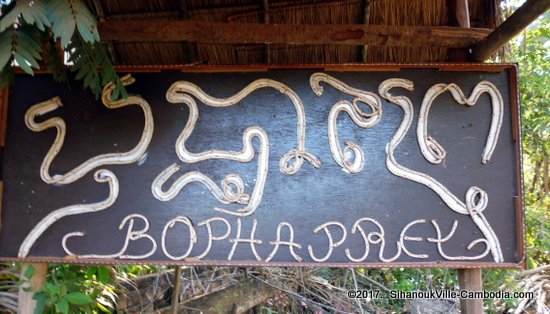 បុប្ផាព្រៃ
BOPHA PREY
©2017... SihanoukVille-Cambodia.com